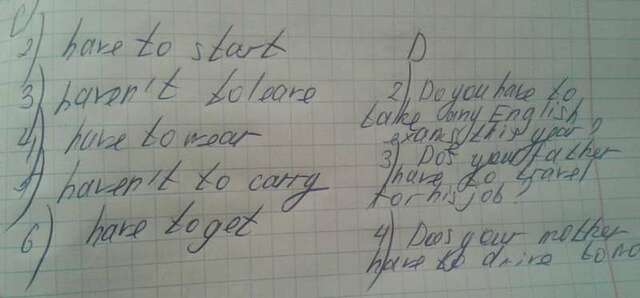 C)
2) have to start
3) haven't to leave
4) have to wear
5) haven't to carry
6) have to get
D
2) Do you have to
take any English
exams this year?
3) Dos your father
have to travel
for his job?
4) Does your mother
have to drive to